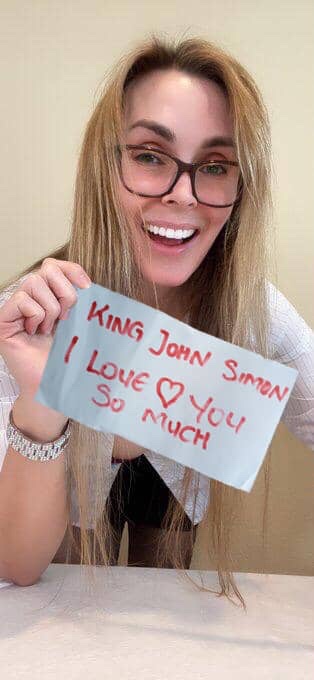 KING JOHN SIMON
I LOVE ♡ YOU
SO MUCH